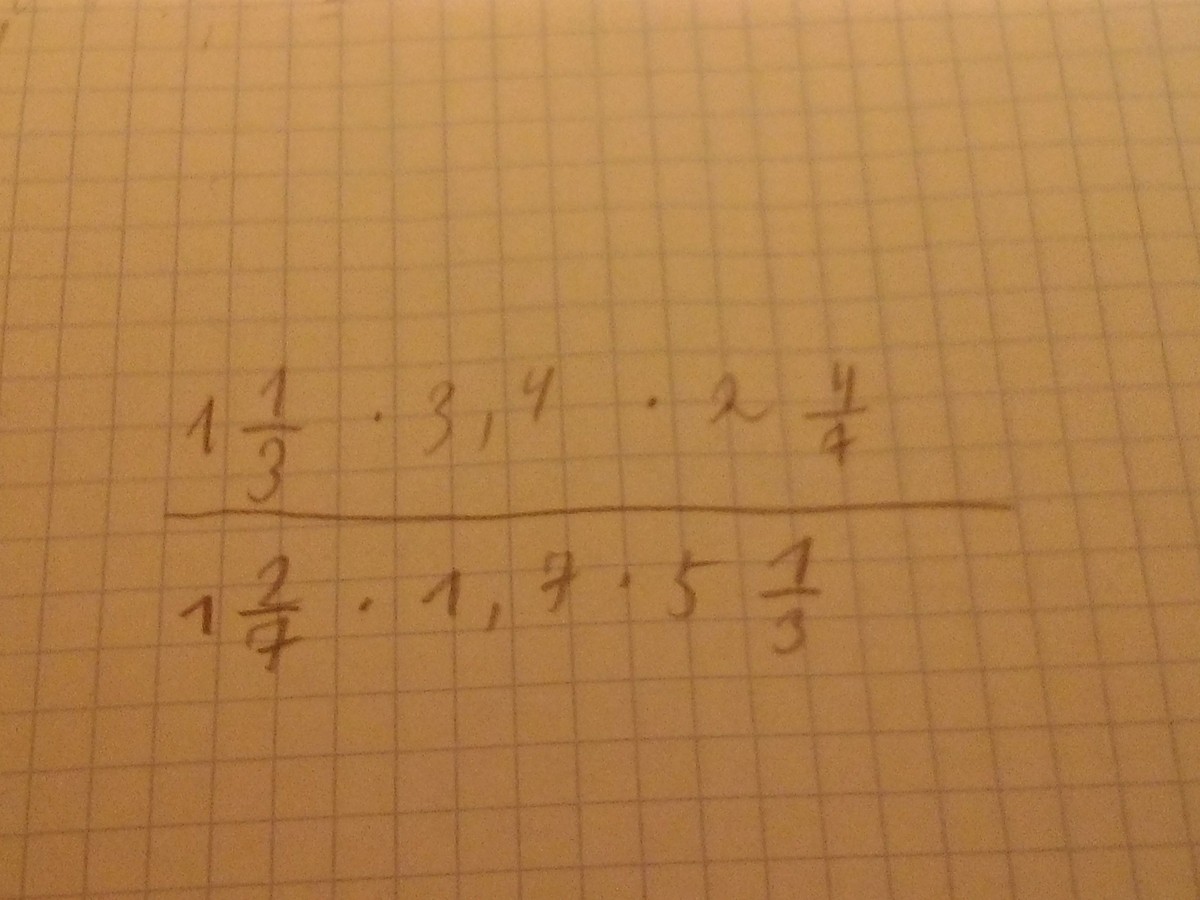 1 1/3 · 3,4 · 2 4/7
1 2/7 · 1,7 · 5 1/3